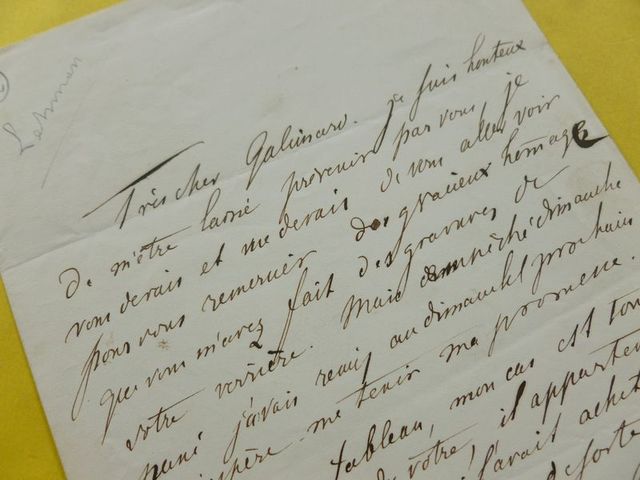 Lehman
Très cher Galimard. je suis honteux
de m'être laissé prévenir par vous je
vous devais et me devais de vous aller voir
pour vous remercier du gracieux hommage
que vous m'avez fait des gravures de
votre verrière. Mais empêché dimanche
passé j'avais remis au dimanche prochain
me tenir ma promesse.
tableau, mon cas est tou
votre, il apparten
l'avait achet
de sorte